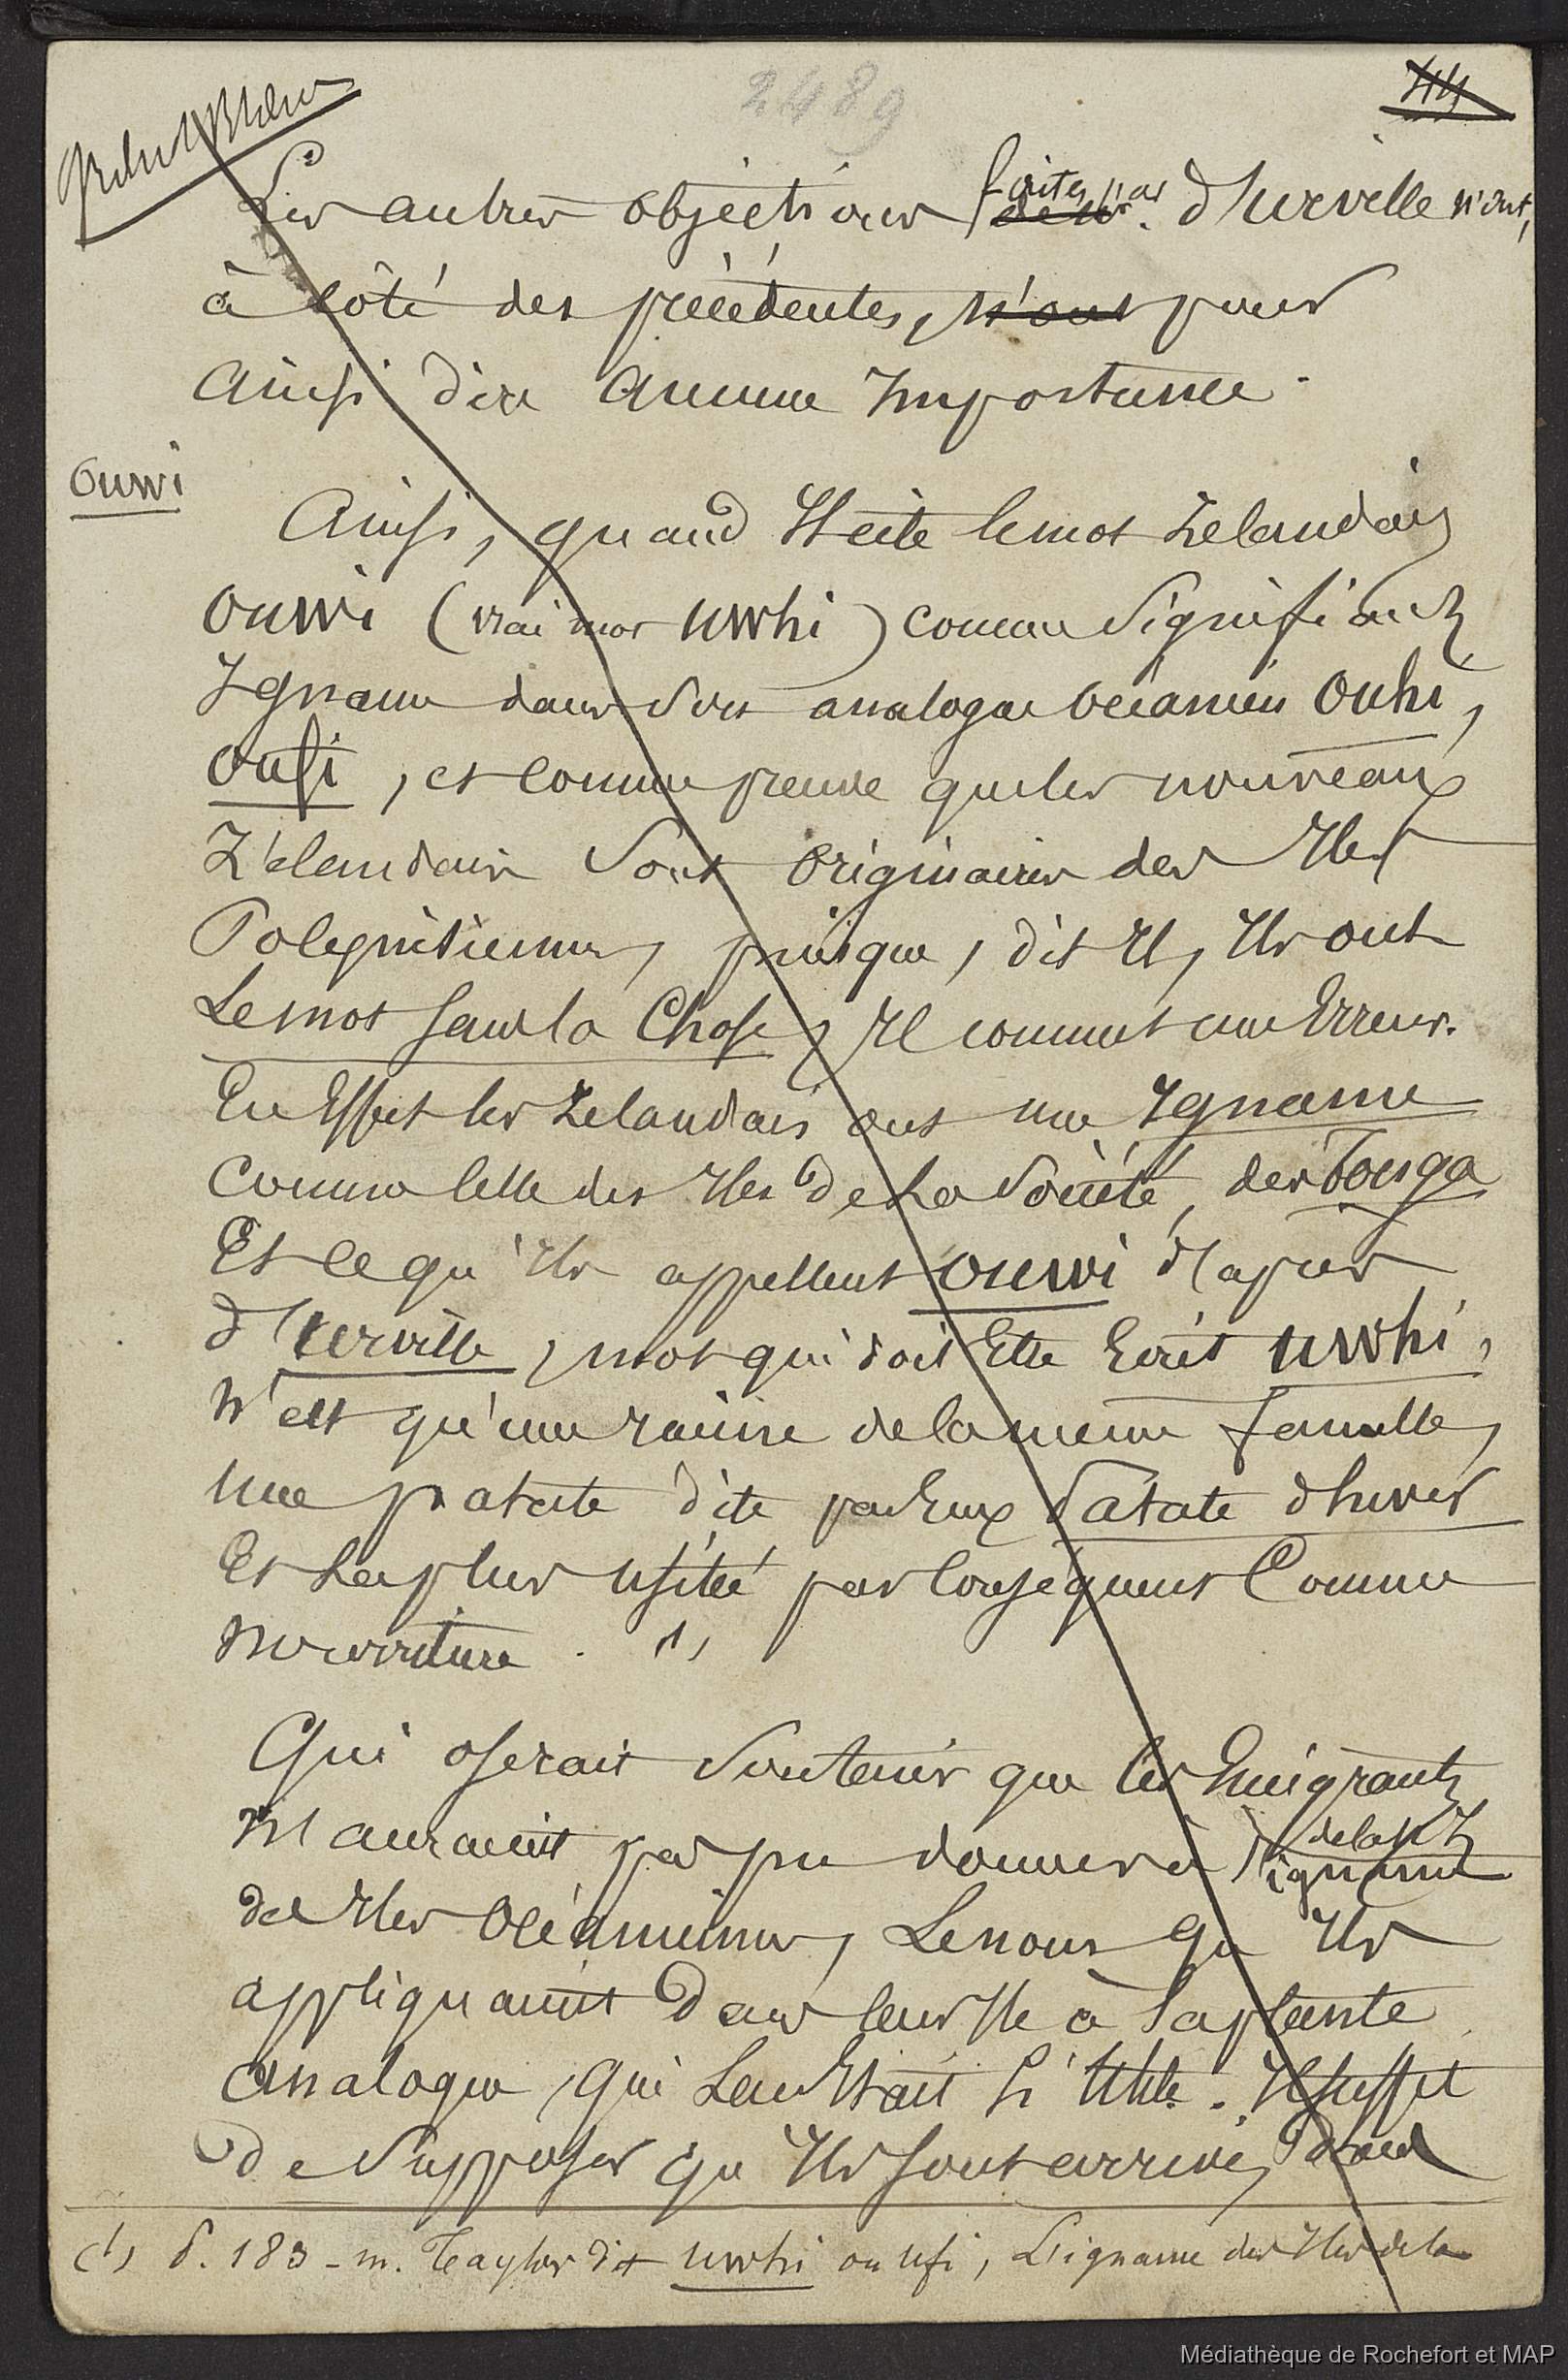 2489
Les autres objections faites par d'Urville n'ont,
à côté des précédentes, n'ont pour
Ainsi dire Aucune Importance.
Ouwi
Ainsi, quand Il cite le mot Zelandais
Ouwi (vrai mot uwhi) comme Signifiant
Igname dans Son analogue océanien Ouhi,
Oufi, et comme preuve que les nouveaux
Zélandais Sont Originaires des Iles
Polynésiennes, puisque, dit Il, Ils ont
Le mot sans la Chose, Il commet une Erreur.
En Effet les Zelandais ont une Igname
Comme celle des Iles de La Société, des Tonga
Et ce qu'Ils appellent Ouwi d'apres
d'Urville, mot qui doit Etre Ecrit uwhi,
N'est qu'une racine de la meme famille,
Une patate dite par Eux Patate d'hiver
Et La plus Usitée par Conséquent Comme
nourriture. (1)
Qui oserait Soutenir que les Emigrants
N'auraient pas pu donner à l'igname
de la N Z
des Iles Océaniennes, Le nom qu'Ils
appliquaient Dans leur Ile à la plante
Analogue, qui Leur Etait Si Utile. Il suffit
De Supposer qu'Ils sont arrivés
(1) P. 183 - m. Taylor dit uwhi ou ufi, L'igname des Iles de la
Médiathèque de Rochefort et MAP